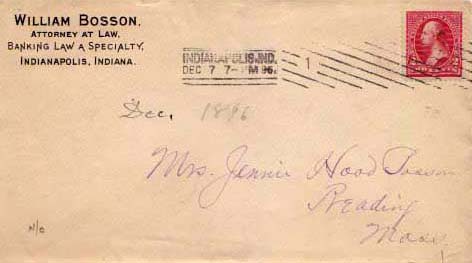 WILLIAM BOSSON.
ATTORNEY AT LAW,
BANKING LAW A SPECIALTY,
INDIANAPOLIS, INDIANA.
INDIANAPOLIS, IND.
DEC 7 7- PM 96
1
Dec, 1896
Mrs. Jennie Hood Bosson
Reading
Mass
N/C